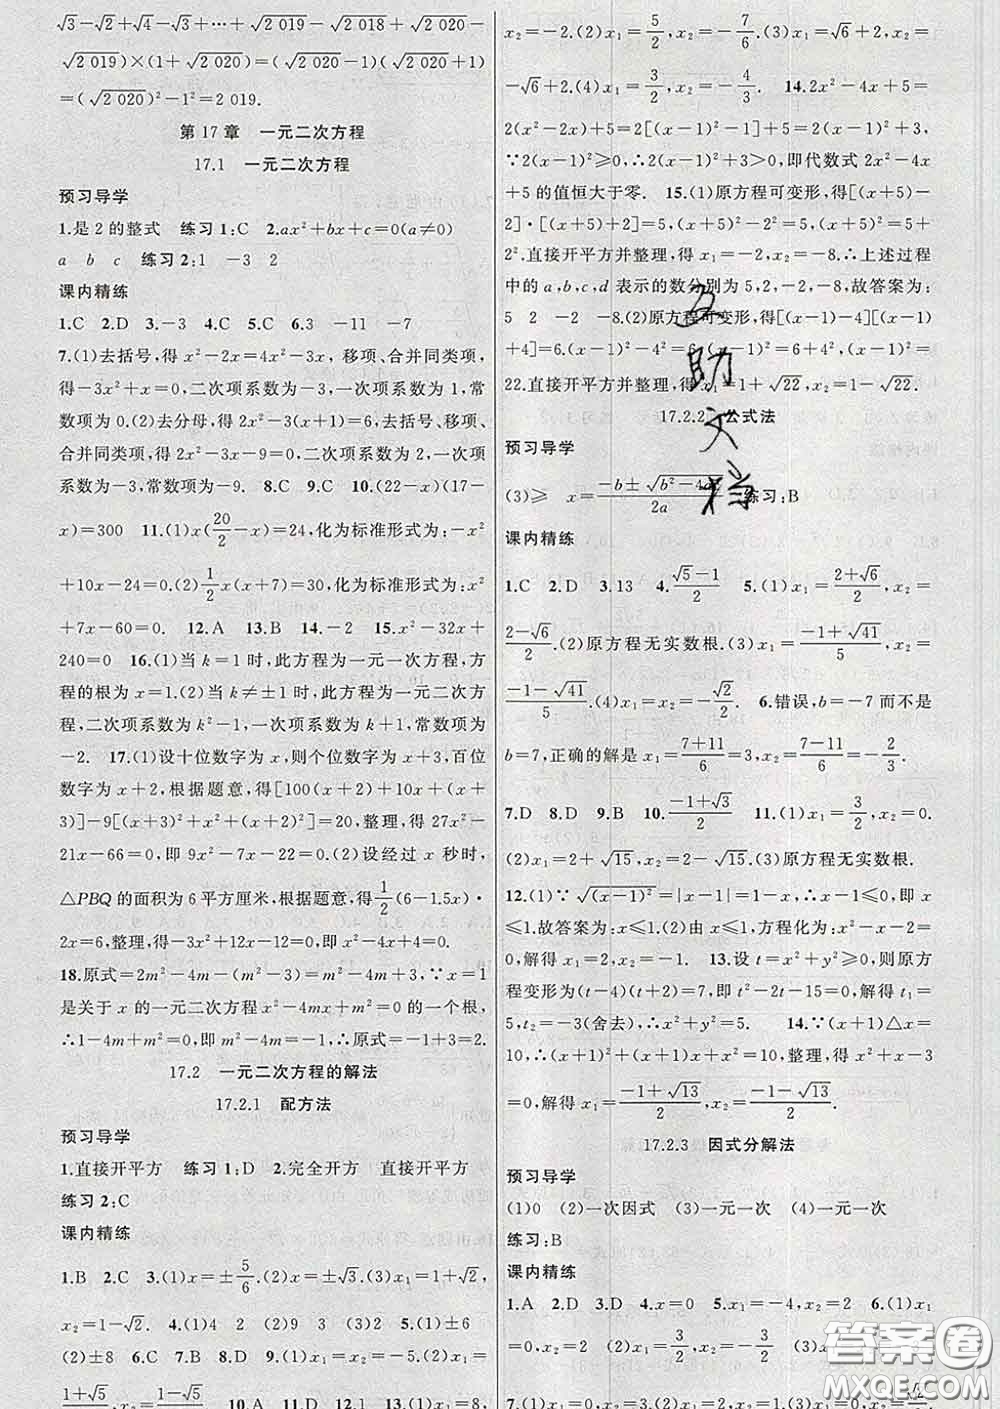 √3-√2+√4-√3+…+√2 019-√2 018+√2 020-
√2 019)×(1+√2 020)=(√2 020-1)(√2 020+1)
=(√2 020)²-1²=2 019.
第17章 一元二次方程
17.1 一元二次方程
预习导学
1.是2的整式 练习1:C 2.ax²+bx+c=0(a≠0)
a b c 练习2:1 -3 2
课内精练
1.C 2.D 3.-3 4.C 5.C 6.3 -11 -7
7.(1)去括号,得x²-2x=4x²-3x,移项、合并同类项,
得-3x²+x=0,二次项系数为-3,一次项系数为1,常
数项为0.(2)去分母,得2(x²+1)-3(x+1)=6,去括号、移项、
合并同类项,得2x²-3x-9=0,二次项系数为2,一次项
系数为-3,常数项为-9. 8.C 9.C 10.(22-x)(17-
x)=300 11.(1)x(20/2-x)=24,化为标准形式为:-x²
+10x-24=0.(2)1/2x(x+7)=30,化为标准形式为:x²
+7x-60=0. 12.A 13.B 14.-2 15.x²-32x+
240=0 16.(1)当k=1时,此方程为一元一次方程,方
程的根为x=1.(2)当k≠±1时,此方程为一元二次方
程,二次项系数为k²-1,一次项系数为k+1,常数项为
-2. 17.(1)设十位数字为x,则个位数字为x+3,百位
数字为x+2,根据题意,得[100(x+2)+10x+(x+
3)]-9[(x+3)²+x²+(x+2)²]=20,整理,得27x²-
21x-66=0,即9x²-7x-22=0.(2)设经过x秒时,
△PBQ的面积为6平方厘米,根据题意,得1/2(6-1.5x)·
2x=6,整理,得-3x²+12x-12=0,即x²-4x+4=0.
18.原式=2m²-4m-(m²-3)=m²-4m+3,∵x=1
是关于x的一元二次方程x²-4mx+m²=0的一个根,
∴1-4m+m²=0,即m²-4m=-1,∴原式=-1+3=2.
17.2 一元二次方程的解法
17.2.1 配方法
预习导学
1.直接开平方 练习1:D 2.完全开方 直接开平方
练习2:C
课内精练
1.B 2.C 3.(1)x=±5/6.(2)x=±√3.(3)x₁=1+√2,
x₂=1-√2. 4.(1)4 2 (2)9 3 5.(1)±6
(2)±8 6.C 7.B 8.D 9.(1)
1+√5 1-√5 10.A 11.D 12.A 13.1 14.(1)x₁=8,
x₂=-2.(2)x₁=5/2,x₂=-7/6.(3)x₁=√6+2,x₂=
-√6+2.(4)x₁=3/2,x₂=-4/3. 14.2x²-4x+5=
2(x²-2x)+5=2[(x-1)²-1]+5=2(x-1)²+3,
∵2(x-1)²≥0,∴2(x-1)²+3>0,即代数式2x²-4x
+5的值恒大于零. 15.(1)原方程可变形,得[(x+5)-
2]·[(x+5)+2]=5,(x+5)²-2²=5,(x+5)²=5+
2².直接开平方并整理,得x₁=-2,x₂=-8.∴上述过程
中的a,b,c,d表示的数分别为5,2,-2,-8,故答案为:
5 2 -2 -8.(2)原方程可变形,得[(x-1)-4][(x-1)
+4]=6.(x-1)²-4²=6,(x-1)²=6+4²,(x-1)²=
22.直接开平方并整理,得x₁=1+√22,x₂=1-√22.
17.2.2 公式法
预习导学
(3)≥ x=(-b±√(b²-4ac))/2a 练习:B
课内精练
1.C 2.D 3.13 4.(√5-1)/2 5.(1)x₁=(2+√6)/2,x₂=
(2-√6)/2.(2)原方程无实数根.(3)x₁=(-1+√41)/5,x₂=
(-1-√41)/5.(4)x₁=x₂=-√2/2 6.错误,b=-7而不是
b=7,正确的解是x₁=(7+11)/6=3,x₂=(7-11)/6=-2/3.
7.D 8.D 9.B 10.(-1+√3)/2 11.(1)x₁=3/2,x₂=0.
(2)x₁=2+√15,x₂=2-√15.(3)原方程无实数根.
12.(1)∵√(x-1)²=|x-1|=1-x,∴x-1≤0,即x
≤1.故答案为:x≤1.(2)由x≤1,方程化为:x²-x-2=
0,解得x₁=2,x₂=-1. 13.设t=x²+y²≥0,则原方
程变形为(t-4)(t+2)=7,即t²-2t-15=0,解得t₁=
5,t₂=-3(舍去),∴x²+y²=5. 14.∵(x+1)△x=
10,∴(x+1)²+(x+1)x+x²=10,整理,得x²+x-3
=0,解得x₁=(-1+√13)/2,x₂=(-1-√13)/2.
17.2.3 因式分解法
预习导学
(1)0 (2)一次因式 (3)一元一次 (4)一元一次
练习:B
课内精练
1.A 2.D 3.D 4.x=0 5.x₁=-4,x₂=2 6.(1)x₁
互助文档
答案圈
MXQE.COM